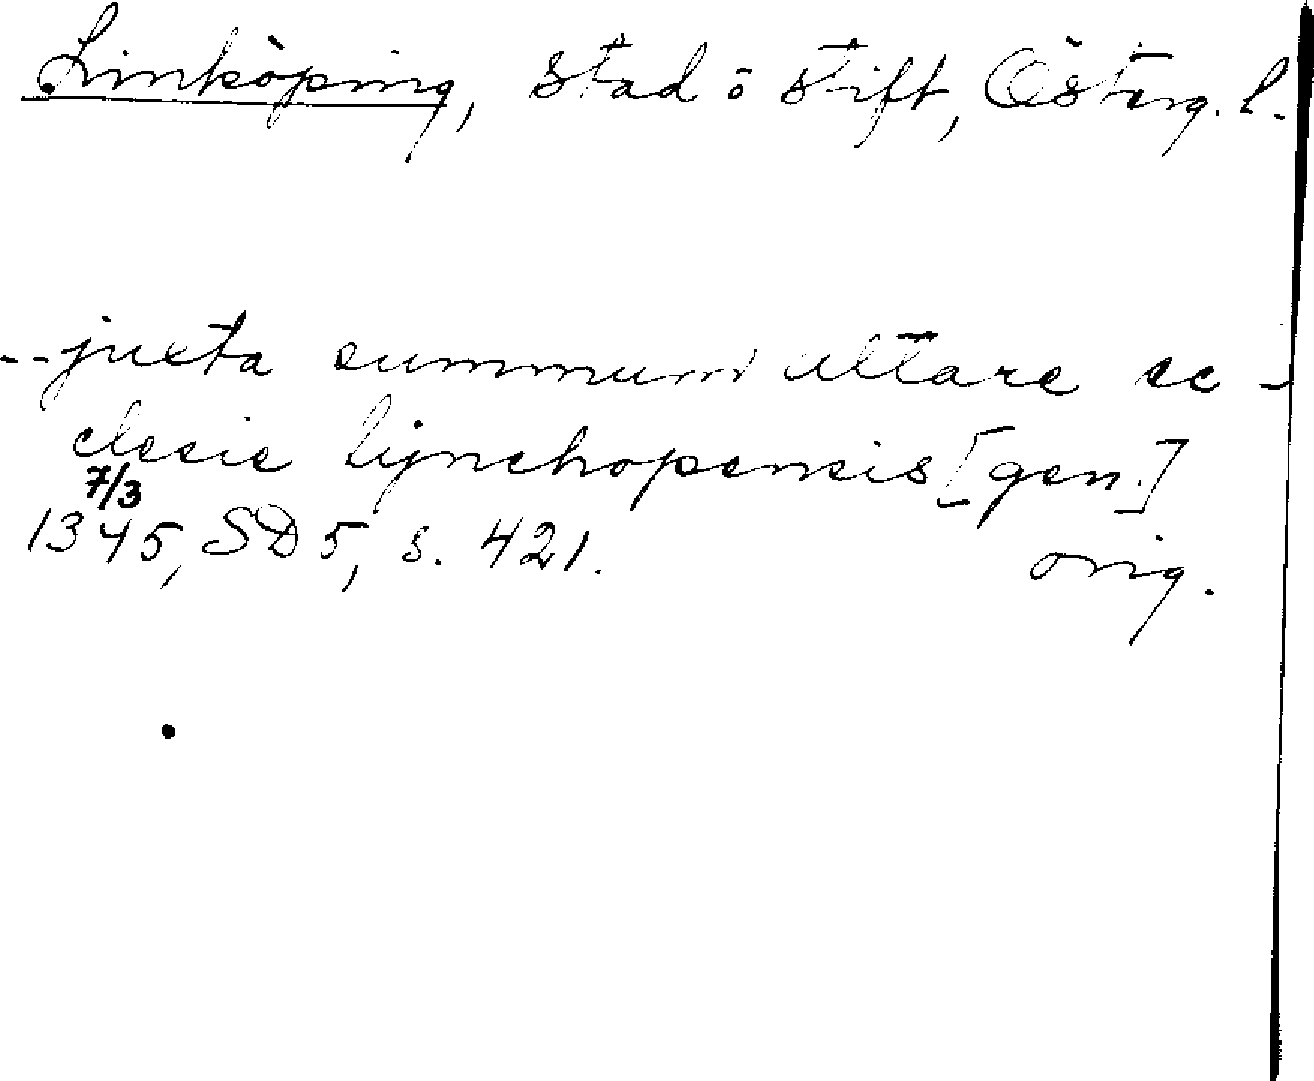 Linköping, stad o stift, Österg. l.
--juxta summum altare ec-
clesie lijnchopensis [gen.]
7/3
1345, SD 5, s. 421. orig.